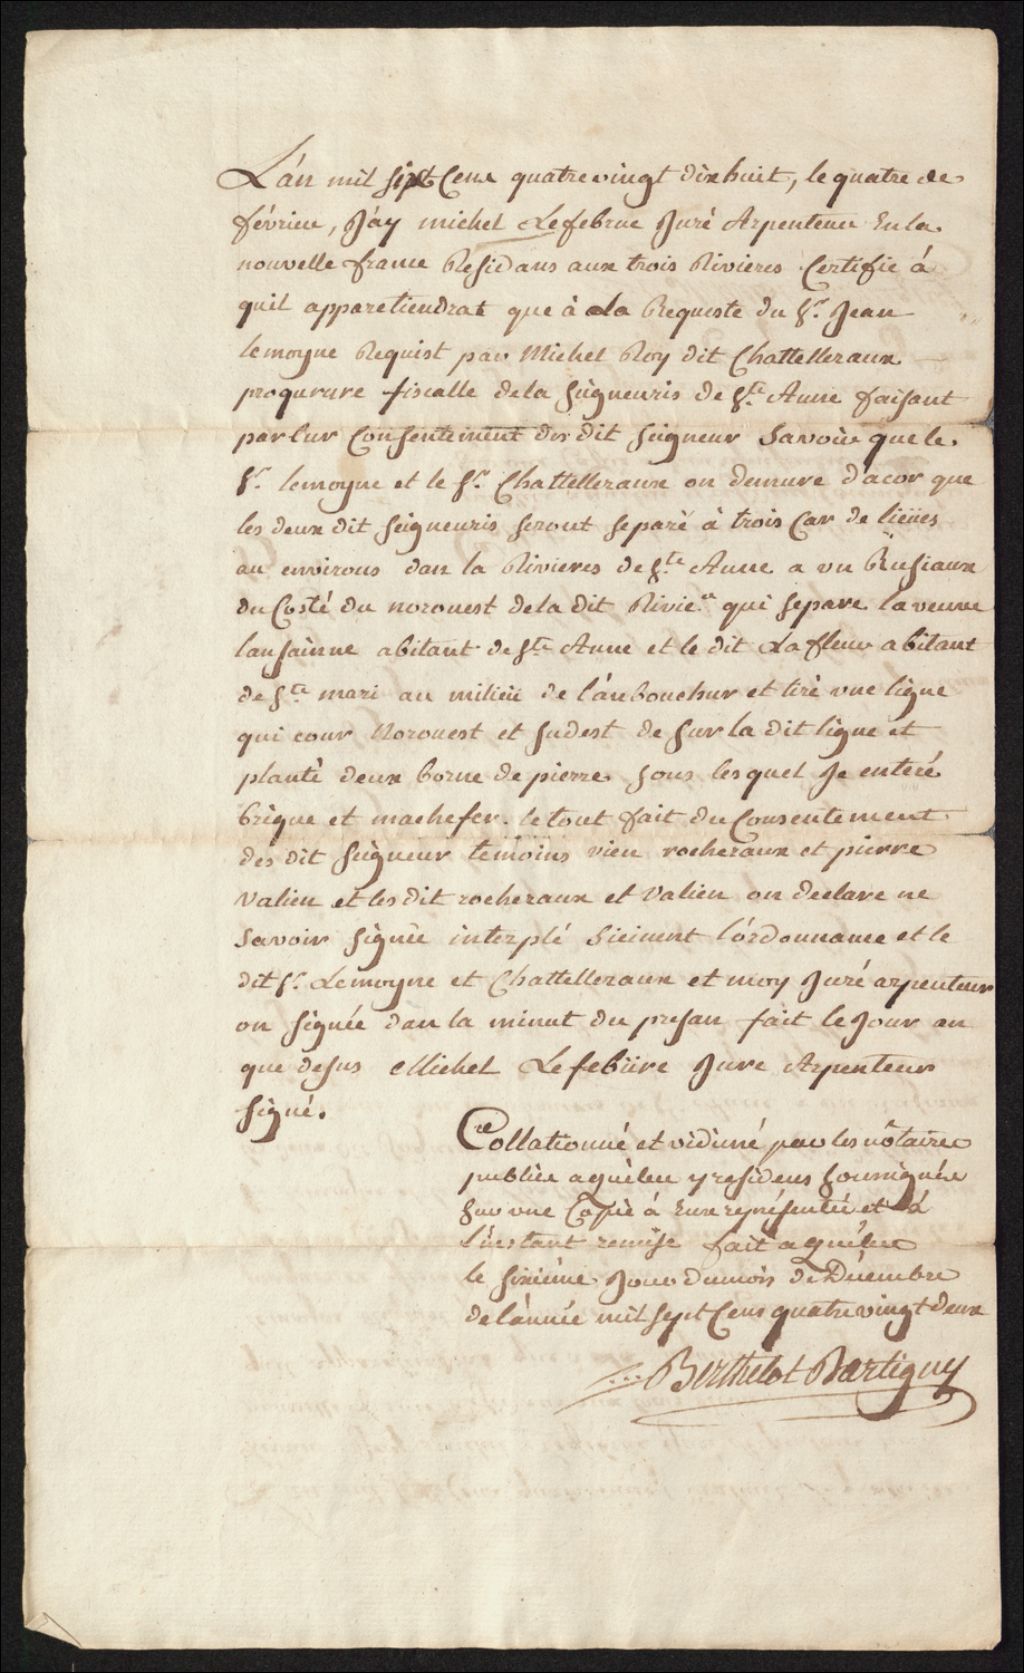 L'án mil sixt Cens quatrevingt dixhuit, le quatre de
février, Jáy michel Lefebrue Juré Arpenteur En la
nouvelle france Residans aux trois Rivieres Certifie á
quil apparetiendrat que à La Requiste du Sr. Jean
lemoyne Requist par Michel Roy dit Chattelleraux
proqurure fiscalle dela seigneuris de Ste. Anne faisant
par lur Consentement des dit seigneur Savoir que le
Sr. lemoyne et le Sr. Chattelleraux on demure d'acor que
les deux dit seigneuris seront separé à trois Car de lieües
au environs dan la Rivieres de Ste. Anne a vn Rusiaux
du Costé du norouest dela dit Rivier. qui separe la veuve
lansainne abitant de Ste Anne et le dit Lafleur abitant
de Ste mari au milieü de l'ánbouchur et tiré vne ligne
qui cour Norouest et sudest de sur la dit ligne et
planté deux borne de pierre sous lesquel Je enteré
brique et machefer. le tout fait du Consentement
des dit seigneur temoins vien rocheraux et pierre
Valien et les dit rocheraux et Valien on declare ne
Savoir signée interplé Sieinent l'órdonnance et le
dit Sr. Lemoyne et Chattelleraux et moy Juré arpenteur
on signée dan la minut du presan fait le Jour an
que desus Michel Lefebüre Jure Arpenteur
signé.
Collationné et vidimé par les nôtaires
publics aquébec y residens soussignés
sur vne Copie á Eux représentée et á
L'instant remise fait a québec
le sixiéme Jour dumois de Décembre
de l'année mil sept Cens quatrevingt deux
Berthelot Dartigny